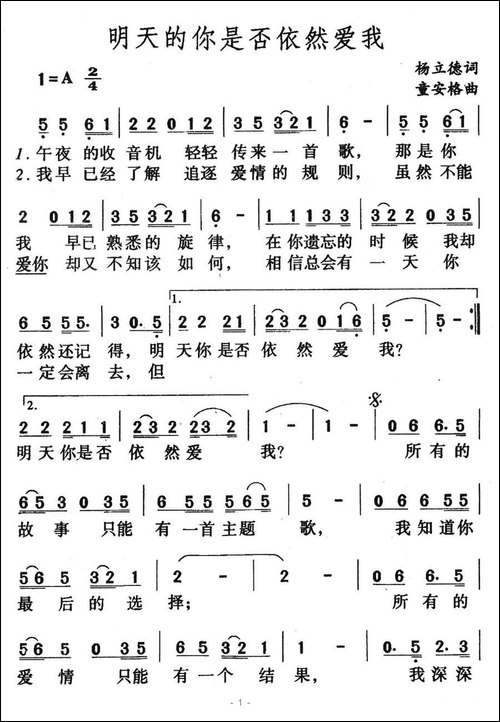 明天的你是否依然爱我
1=A 2/4
杨立德词
童安格曲
5 5 6 1 | 2 2 0 1 2 | 3 5 3 2 1 | 6 - | 5 5 6 1 |
1. 午夜 的收 音机 轻轻 传来 一 首 歌, 那是 你
2. 我早 已经 了解 追逐 爱情 的 规 则, 虽然 不能
2 0 1 2 | 3 5 3 2 1 | 6 - | 1 1 1 3 3 | 3 2 2 0 3 5 |
我 早已 熟悉 的 旋 律, 在 你遗忘 的 时 候 我却
爱你 却又 不知 该 如 何, 相 信总会 有 一 天 你
6 5 5 5. | 3 0. 5 | 1. 2 2 2 1 | 2 3 2 0 1 6 | 5 - | 5 - :|
依 然还记 得, 明 天你是否 依 然 爱 我?
一 定会离 去, 但
2. 2 2 2 1 1 | 2 3 2 2 3 2 | 1 - | 1 - | 0 6 6. 5 |
明天 你是否 依 然爱 我? 所有 的
6 5 3 0 3 5 | 6 5 5 5 6 5 | 5 - | 5 - | 0 6 6 5 5 |
故 事 只能 有 一首主题 歌, 我知道你
5 6 5 3 2 1 | 2 - | 2 - | 0 6 6. 5 |
最 后的 选 择; 所有 的
5 6 5 0 3 5 | 6 5 3 2 1 | 1 - | 0. 5 2. 3 |
爱 情 只能 有一个 结 果, 我 深深
- 1 -